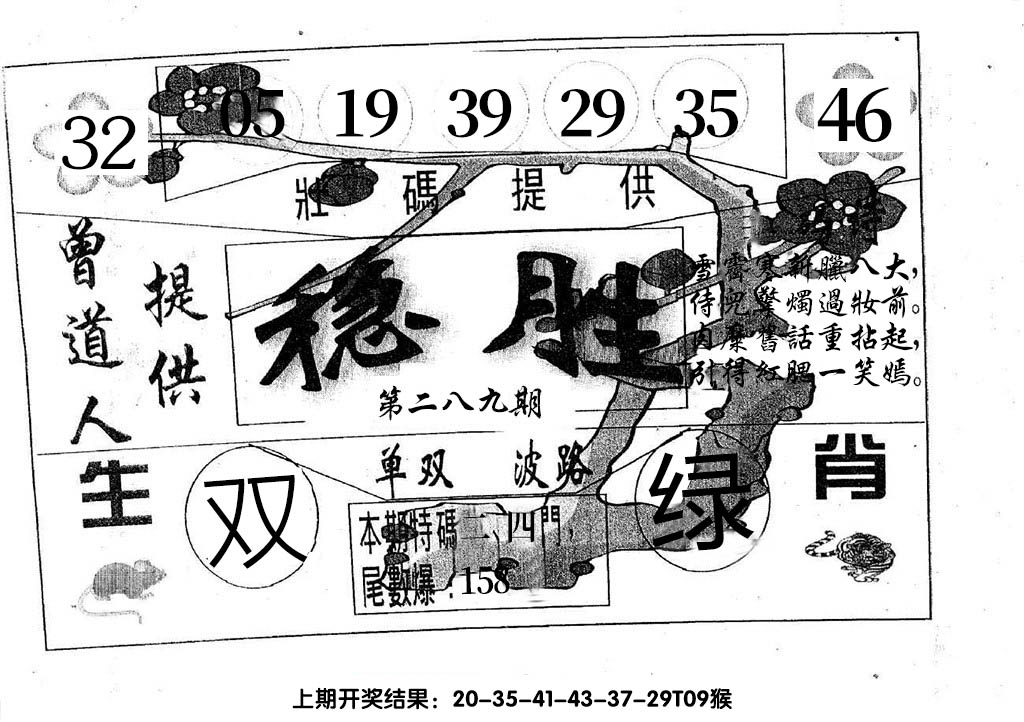 32 05 19 39 29 35 46
壯碼提供
特
曾道人
提供
稳胜
第二八九期
雪霽寒新臘八大，
侍兒擎燭過妝前。
內糜舊話重拈起，
引得紅腮一笑嫣。
单双 波路
生肖
双
绿
本期特碼二、四門，
尾數爆：158
上期开奖结果：20-35-41-43-37-29T09猴